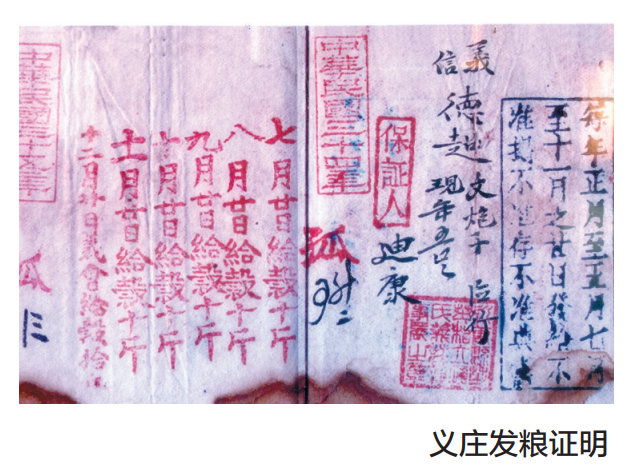 每年正月至五月七月
至十一月之廿日發給不
准封不准存不准典賣
義
信
德趙
現年五
保証人
迪康
中華民國三十四年
孤
七月廿日給穀十斤
八月廿日給穀十斤
九月廿日給穀十斤
十月廿日給穀十斤
十一月廿日給穀十斤
十二月廿日義會給穀拾
中華民國三十五年
孤
义庄发粮证明